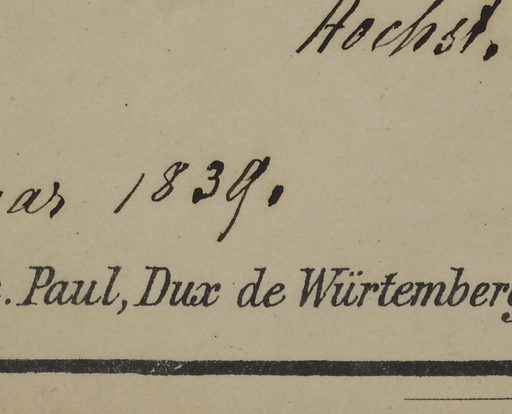 Hochst.
1839.
. Paul, Dux de Würtemberg